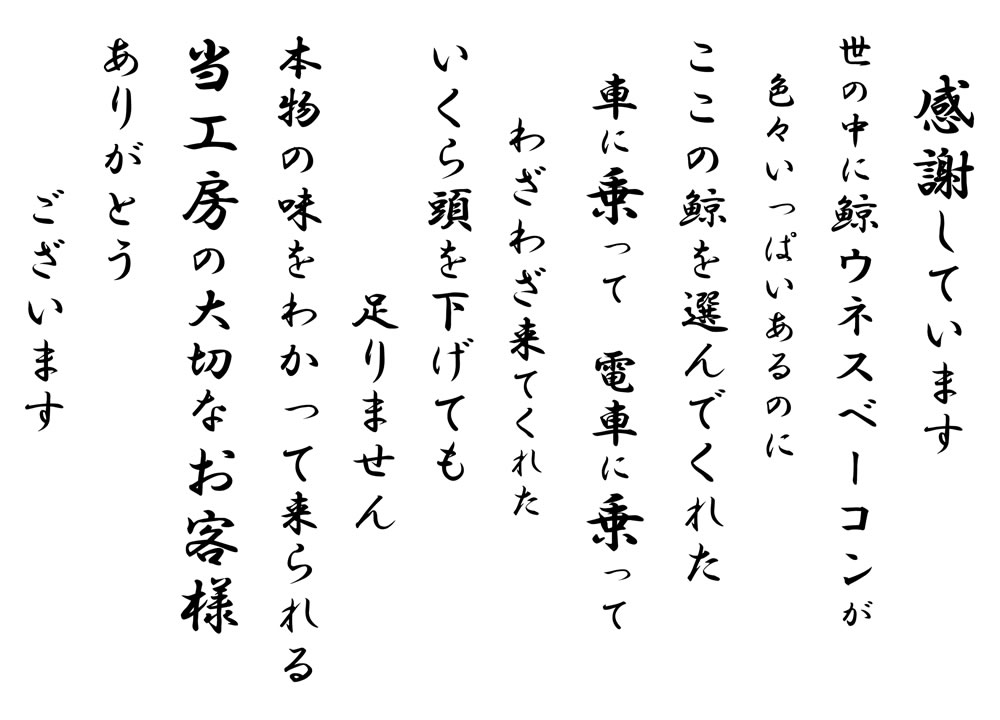 感謝しています
世の中に鯨ウネスベーコンが
色々いっぱいあるのに
ここの鯨を選んでくれた
車に乗って　電車に乗って
わざわざ来てくれた
いくら頭を下げても
足りません
本物の味をわかって来られる
当工房の大切なお客様
ありがとう
ございます